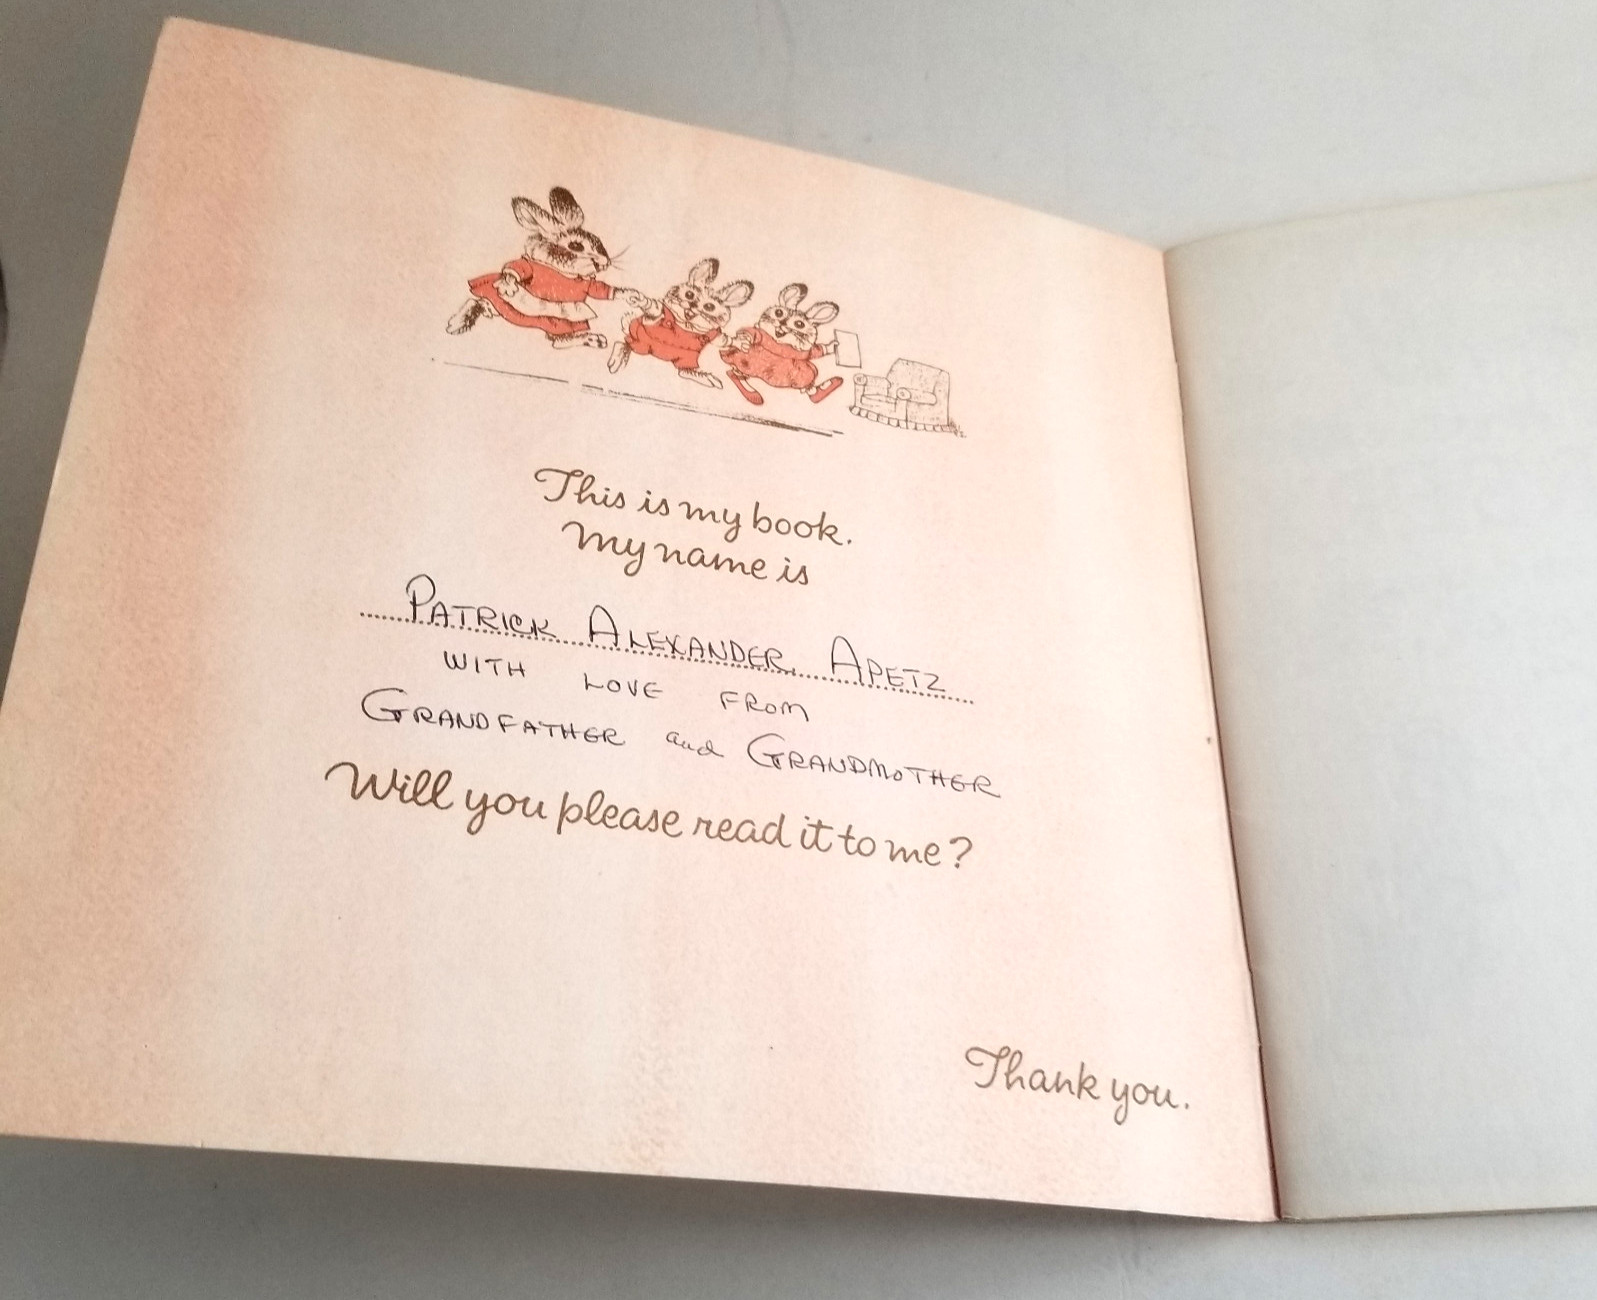 This is my book.
My name is
PATRICK ALEXANDER APETZ
WITH LOVE FROM
GRANDFATHER and GRANDMOTHER
Will you please read it to me?
Thank you.